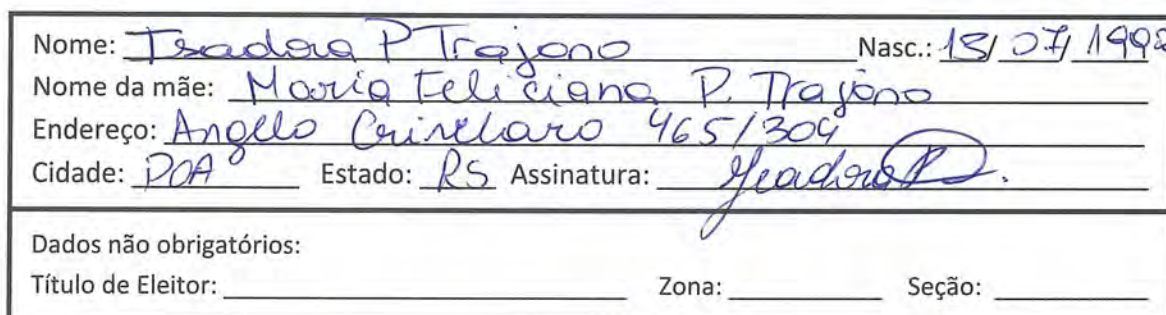 Nome: Isadora P Trajono Nasc.: 13/ 07/ 199
Nome da mãe: Maria Feliciana P. Trajano
Endereço: Angelo Crivellaro 465/304
Cidade: POA Estado: RS Assinatura: Isadora
Dados não obrigatórios:
Título de Eleitor: Zona: Seção: